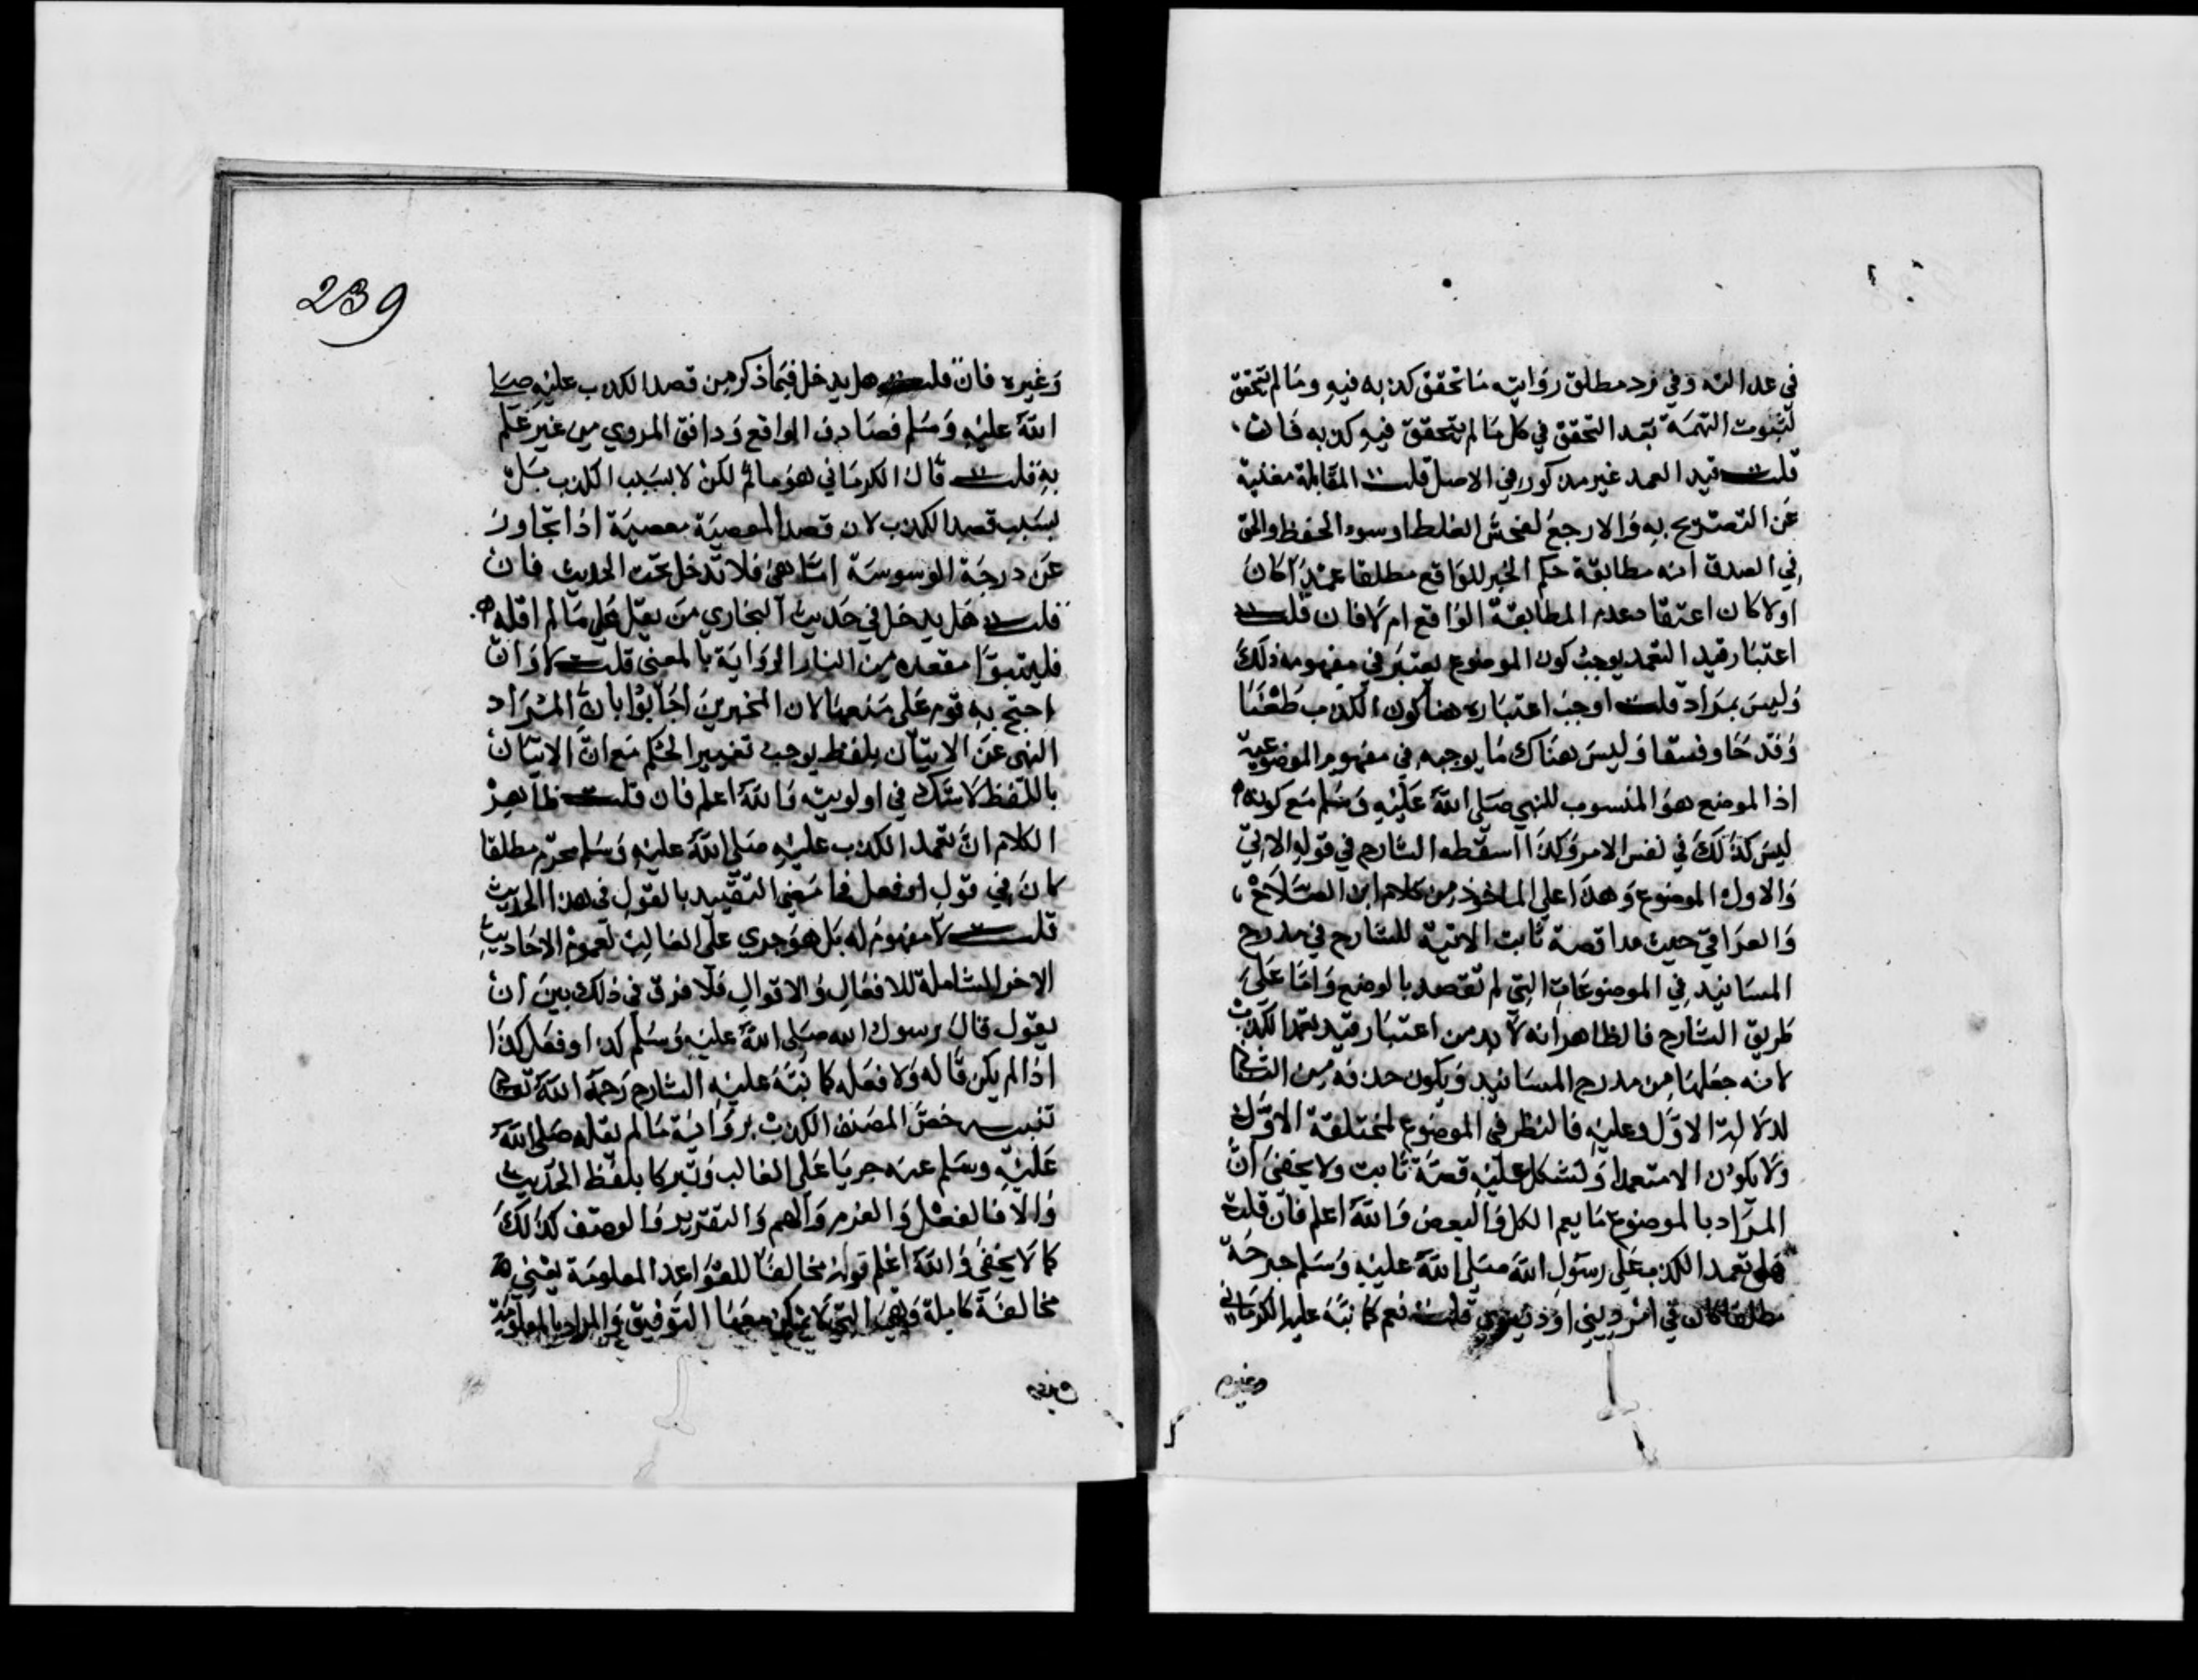 في عدالته وفي رد مطلق روايته ما تحقق كذبه فيه وما لم تحقق
لثبوت التهمة بعد التحقق في كل ما لم يتحقق فيه كذبه فان
قلت قيد العمد غير مذكور في الاصل قلت المقابلة مغنية
عن التصريح به والا رجع لفحش الغلط او سوء الحفظ والحق
في الصدق انه مطابقة حكم الخبر للواقع مطلقا عمدا كان
اولا كان اعتقاد عدم المطابقة الواقع ام لا فان قلت
اعتبار قيد التعمد يوجب كون الموضوع يعتبر في مفهومه ذلك
وليس بمراد قلت اوجب اعتباره هنا كون الكذب طعنا
وقدحا وفسقا وليس هناك ما يوجبه في مفهوم الموضوعية
اذا لموضع هو المنسوب للنبي صلى الله عليه وسلم مع كونه
ليس كذلك في نفس الامر وكذا اسقطه الشارح في قوله الاتي
والاول الموضوع وهذا على الماخوذ من كلام ابن الصلاح
والعراقي حيث عدا قصة ثابت الاتية للشارح في مدرج
المسانيد في الموضوعات التي لم تقصد بالوضع واما على
طريق الشارح فالظاهر انه لا بد من اعتبار قيد تعمد الكذب
لانه جعلها من مدرج المسانيد ويكون حذفه من الثاني
لدلالة الاول وعليه فالنظر في الموضوع لمختلقة الاول
ولا يكون الا متعمدا وتشكل عليه قصة ثابت ولا يخفى ان
المراد بالموضوع ما يعم الكل والبعض والله اعلم فان قلت
هل تعمد الكذب على رسول الله صلى الله عليه وسلم جرحة
مطلقا كان في امر ديني او دنيوي قلت نعم كما نبه عليه الكرماني
وغيره
239
وغيره فان قلت هل يدخل فيما ذكر من قصد الكذب عليه صلى
الله عليه وسلم فصادف الواقع ووافق المروي من غير علم
به قلت قال الكرماني هو ماثم لكن لا بسبب الكذب بل
بسبب قصد الكذب لان قصد المعصية معصية اذا تجاوز
عن درجة الوسوسة اما هي فلا تدخل تحت الحديث فان
قلت هل يدخل في حديث البخاري من يقل علي ما لم اقله
فليتبوا مقعده من النار الرواية بالمعنى قلت لا وان
احتج به قوم على منعها لان المخبرين اجابوا بان المراد
النهي عن الاتيان بلفظ يوجب تغيير الحكم مع ان الاتيان
باللفظ لا شك في اولويته والله اعلم فان قلت ظاهر
الكلام ان تعمد الكذب عليه صلى الله عليه وسلم محرم مطلقا
كان في قول او فعل فما معنى التقييد بالقول في هذا الحديث
قلت لا مفهوم له بل هو جري على الغالب لعموم الاحاديث
الاخر الشاملة للافعال والاقوال فلا فرق في ذلك بين ان
يقول قال رسول الله صلى الله عليه وسلم كذا او فعل كذا
اذا لم يكن قاله ولا فعله كما نبه عليه الشارح رحمه الله تعالى
تنبيه خص المصنف الكذب برواية ما لم يقله صلى الله
عليه وسلم عنه جريا على الغالب وتبركا بلفظ الحديث
والا فالفعل والعزم والهم والتقرير والوصف كذلك
كما لا يخفى والله اعلم قوله مخالفا للقواعد المعلومة يعني
مخالفة كاملة وهي التي لا يمكن معها التوفيق والمراد بالمعلومة